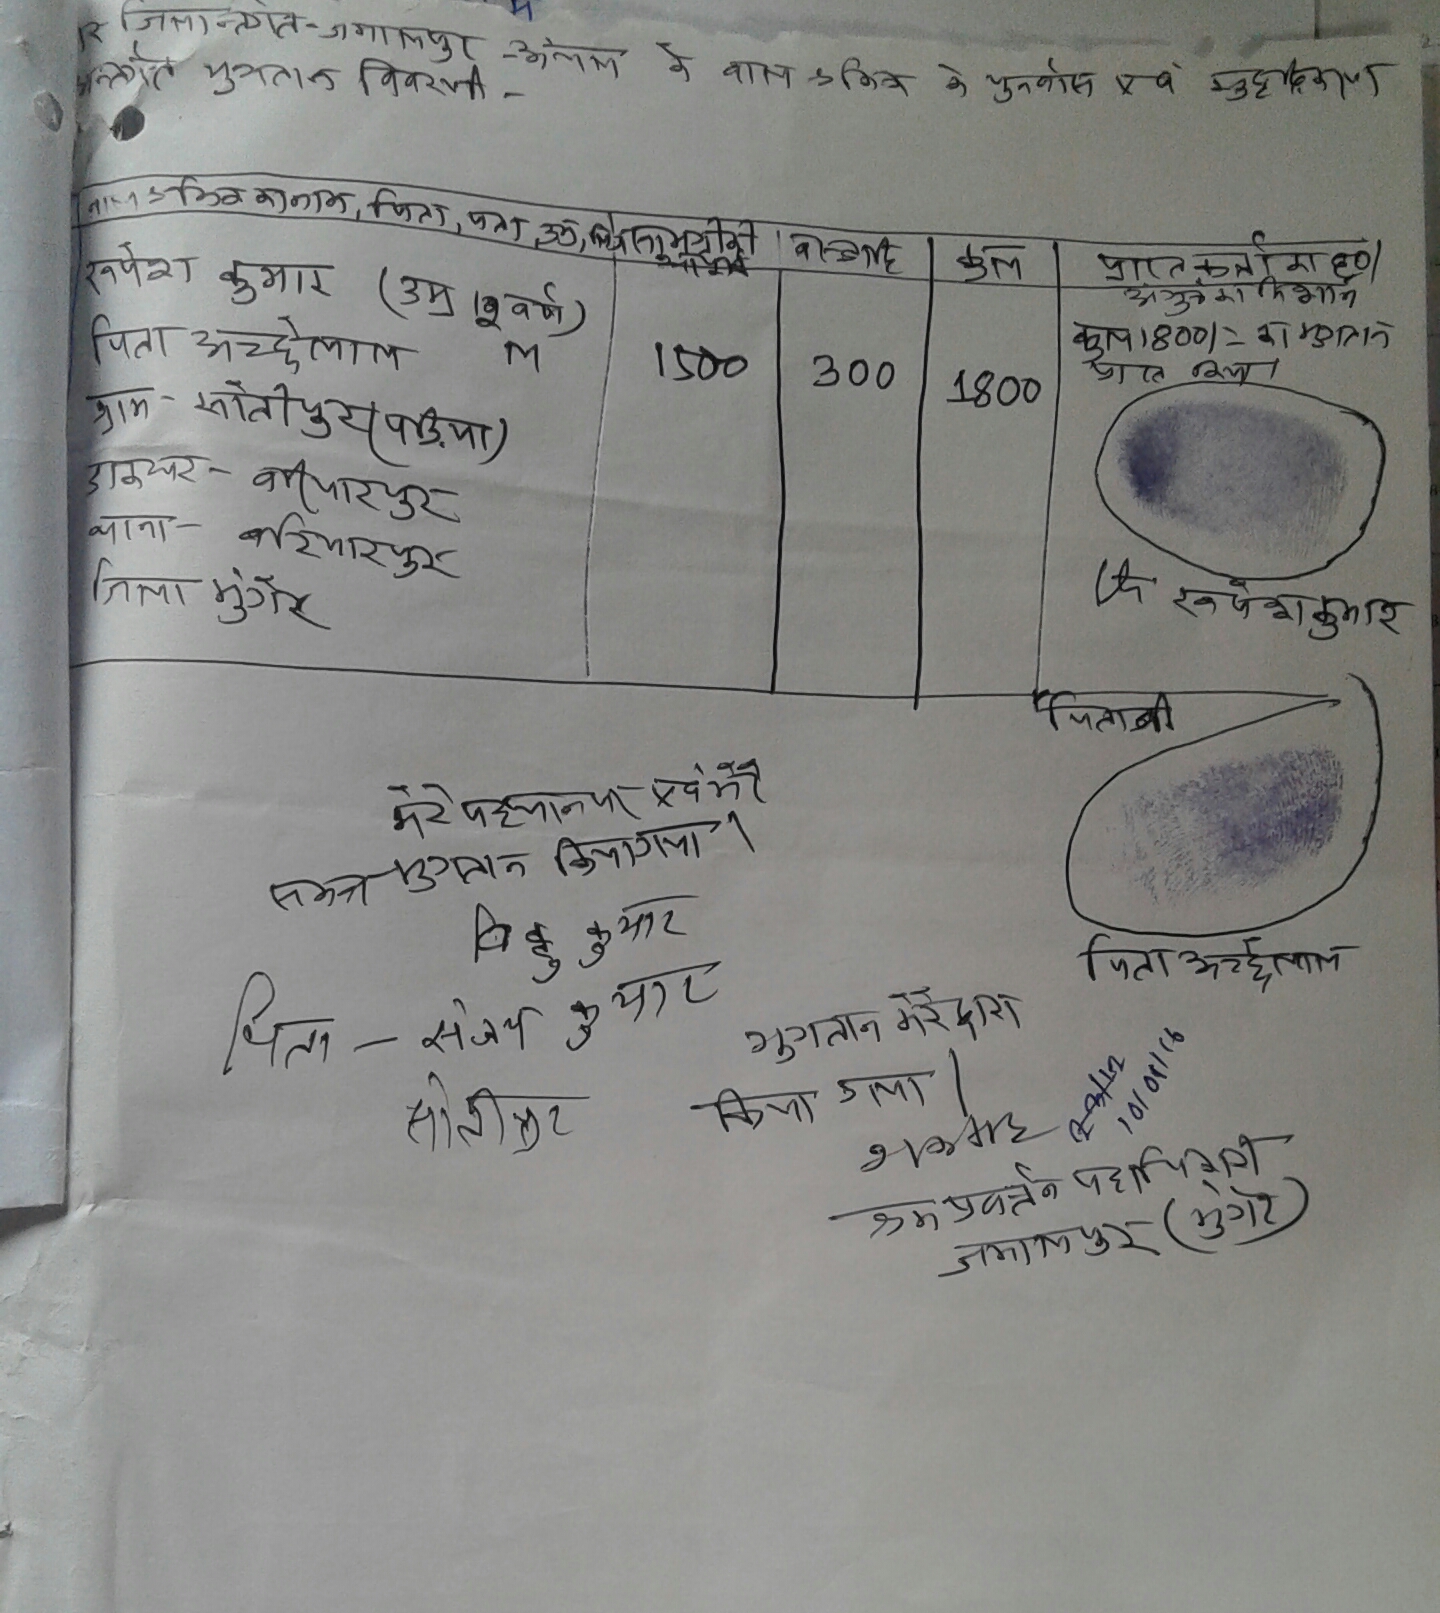 जिलान्तर्गत-जमालपुर-अंचल के बाल श्रमिक के पुनर्वास एवं सुदृढ़ीकरण
अन्तर्गत भुगतान विवरणी -
बाल श्रमिक का नाम, पिता, पता, उम्र, लिंग
सामग्री की
वस्त्रादि
कुल
प्राप्तकर्ता का ह०/
अंगुठे का निशान
रूपेश कुमार (उम्र 12 वर्ष)
पिता अच्छेलाल M
ग्राम - सोतीपुर (पड़िया)
डाकघर - बरियारपुर
थाना - बरियारपुर
जिला मुंगेर
1500
300
1800
कुल 1800/= का भुगतान
प्राप्त किया।
रूपेश कुमार
पिता की
पिता अच्छेलाल
मेरे पहचान पर एवं मेरे
समक्ष भुगतान किया गया।
कुमार
पिता - संजय कुमार
सोतीपुर
भुगतान मेरे द्वारा
किया गया।
10/01/16
श्रम प्रवर्तन पदाधिकारी
जमालपुर (मुंगेर)